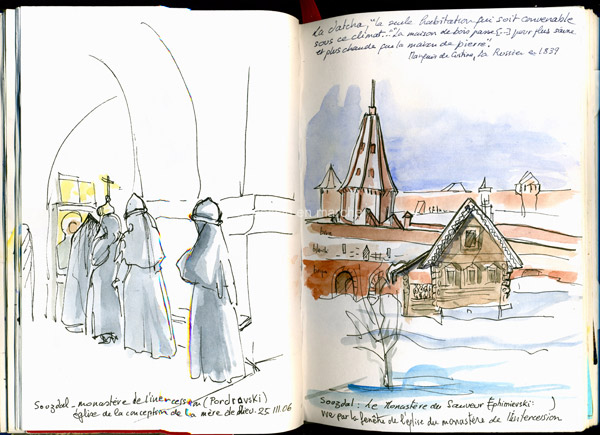 Souzdal - monastère de l'intercession (Pordravski)
église de la conception de la mère de Dieu. 25 III 06
La datcha, "la seule habitation qui soit convenable
sous ce climat..." "La maison de bois passe [...] pour plus saine
et plus chaude que la maison de pierre".
Marquis de Custine, La Russie en 1839
Souzdal : Le Monastère du Sauveur Ephimievski :
vue par la fenêtre de l'église du monastère de l'intercession